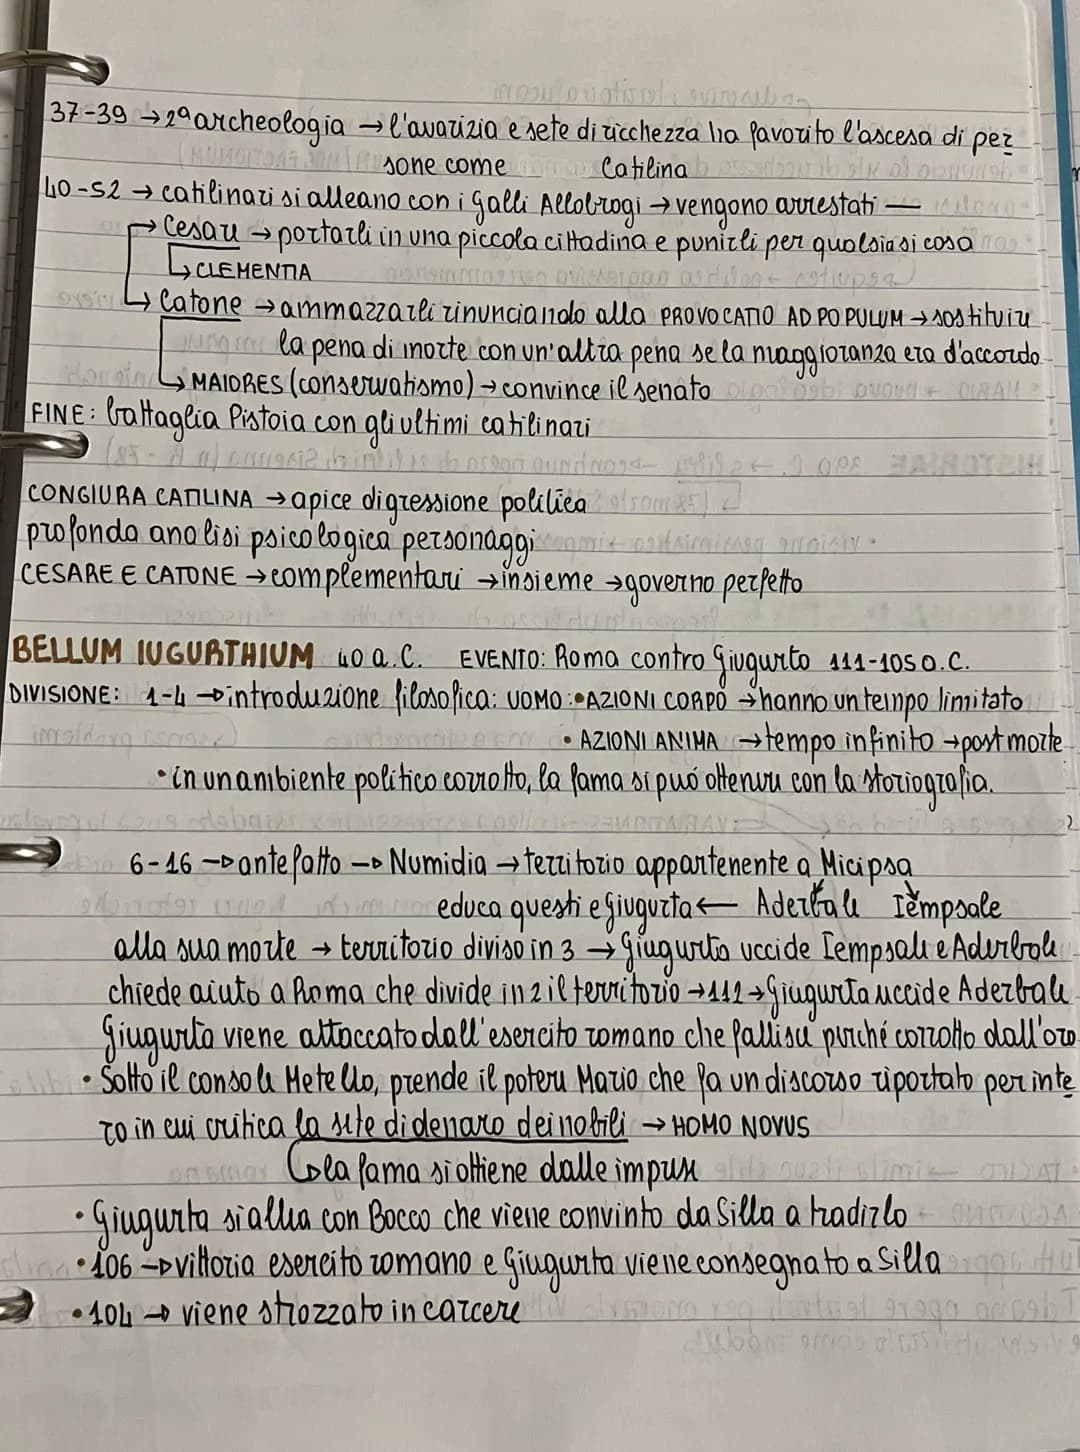 37-39 → 2ª archeologia → l'avarizia e sete di ricchezza ha favorito l'ascesa di per
sone come Catilina
40-52 → catilinari si alleano con i Galli Allobrogi → vengono arrestati —
→ Cesare → portarli in una piccola cittadina e punirli per qualsiasi cosa
↳ CLEMENTIA
↳ Catone → ammazzarli rinunciando alla PROVOCATIO AD POPULUM → sostituire
la pena di morte con un'altra pena se la maggioranza era d'accordo
↳ MAIORES (conservatismo) → convince il senato
FINE: battaglia Pistoia con gli ultimi catilinari
CONGIURA CATILINA → apice digressione politica
profonda analisi psicologica personaggi
CESARE E CATONE → complementari → insieme → governo perfetto
BELLUM IUGURTHIUM 40 a.C. EVENTO: Roma contro Giugurta 111-105 a.C.
DIVISIONE: 1-4 → introduzione filosofica: UOMO: • AZIONI CORPO → hanno un tempo limitato
• AZIONI ANIMA → tempo infinito → post morte
• in un ambiente politico corrotto, la fama si può ottenere con la storiografia.
6-16 → antefatto → Numidia → territorio appartenente a Micipsa
educa questi e Giugurta ← Aderbale Iempsale
alla sua morte → territorio diviso in 3 → Giugurta uccide Iempsale e Aderbale
chiede aiuto a Roma che divide in 2 il territorio → 112 → Giugurta uccide Aderbale
Giugurta viene attaccato dall'esercito romano che fallisce perché corrotto dall'oro
• Sotto il console Metello, prende il potere Mario che fa un discorso riportato per inte
ro in cui critica la sete di denaro dei nobili → HOMO NOVUS
↳ la fama si ottiene dalle imprese
• Giugurta si allea con Bocco che viene convinto da Silla a tradirlo
• 106 → vittoria esercito romano e Giugurta viene consegnato a Silla
• 104 → viene strozzato in carcere